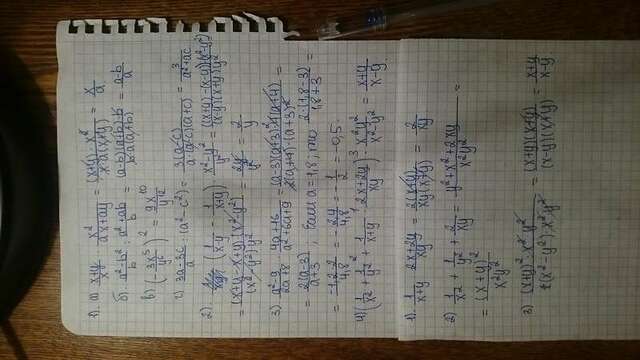 1). а) (x+y)/x · x²/(ax+ay) = ((x+y)·x²)/(x·a(x+y)) = x/a
б) (a²-b²)/b : (a²+ab)/b = ((a-b)(a+b)·b)/(b·a(a+b)) = (a-b)/a
в) (-3x⁵/y⁶)² = 9x¹⁰/y¹²
г) (3a-3c)/a : (a²-c²) = 3(a-c)/(a·(a-c)(a+c)) = 3/(a²+ac)
2) (1/(x-y) - 1/(x+y)) · (x²-y²)/y² = ((x+y)-(x-y))·(x²-y²)/((x-y)(x+y)y²)
= (x+y-x+y)(x²-y²)/((x²-y²)y²) = 2y/y² = 2/y
3) (a²-9)/(2a+8) · (4a+16)/(a²+6a+9) = (a-3)(a+3)·4(a+4)/(2(a+4)·(a+3)²) =
= 2(a-3)/(a+3) ; Если a=1,8; то 2·(1,8-3)/(1,8+3) =
= -1,2·2/4,8 = -2,4/4,8 = -1/2 = -0,5.
4) (1/x² + 1/y² + 1/(x+y) · (2x+2y)/xy) · x²y²/(x²-y²) = (x+y)/(x-y)
1). 1/(x+y) · (2x+2y)/xy = 2(x+y)/(xy(x+y)) = 2/xy
2) 1/x² + 1/y² + 2/xy = (y²+x²+2xy)/x²y² =
= (x+y)²/x²y²
3) (x+y)²·x²y²/((x²-y²)·x²y²) = (x+y)(x+y)/((x-y)(x+y)) = (x+y)/(x-y)